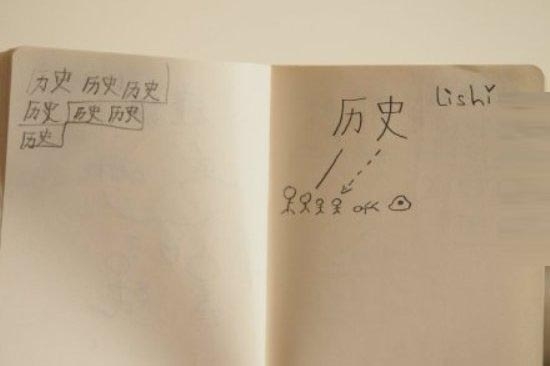 历史 历史 历史
历史 历史 历史
历史
历史 lishi
ok